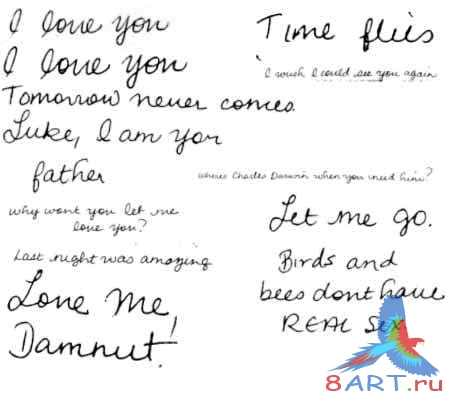 I love you
I love you
Tomorrow never comes
Luke, I am yor
father
why wont you let me
love you?
Last night was amazing
Love Me,
Damnut!
Time flies
I wish I could see you again
wheres Charles Darwin when you need him?
Let me go.
Birds and
bees dont have
REAL Sex.
8ART.ru